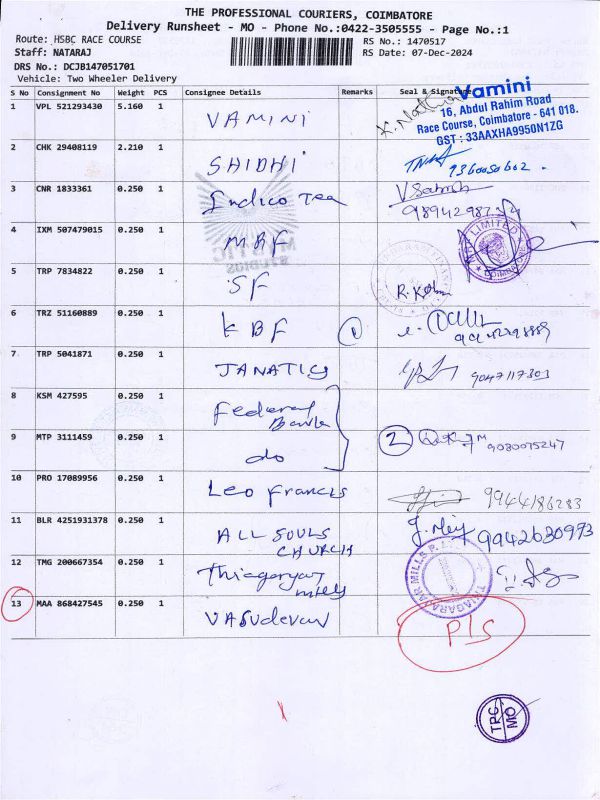 THE PROFESSIONAL COURIERS, COIMBATORE
Delivery Runsheet - MO - Phone No.:0422-3505555 - Page No.:1
Route: HSBC RACE COURSE
Staff: NATARAJ
RS No.: 1470517
RS Date: 07-Dec-2024
DRS No.: DCJB147051701
Vehicle: Two Wheeler Delivery
S No Consignment No Weight PCS Consignee Details Remarks Seal & Signature
1 VPL 521293430 5.160 1 VAMINI
Vamini
16, Abdul Rahim Road
Race Course, Coimbatore - 641 018.
GST : 33AAXHA9950N1ZG
2 CHK 29408119 2.210 1 SHIDHI
3 CNR 1833361 0.250 1 Indico Tea
4 IXM 507479015 0.250 1 MRF
MRF LIMITED
COIMBATORE
5 TRP 7834822 0.250 1 SF
6 TRZ 51160889 0.250 1 KBF 1
7 TRP 5041871 0.250 1 JANATICS 9047117303
8 KSM 427595 0.250 1 Federal Bank
9 MTP 3111459 0.250 1 do 2 9080075247
10 PRO 17089956 0.250 1 Leo Francis 9944186283
11 BLR 4251931378 0.250 1 ALL SOULS CHURCH 9942630993
12 TMG 200667354 0.250 1 Thiagarajar mills
THIAGARAJAR MILLS P.
13 MAA 868427545 0.250 1 VASUdevan P/S
TPC
MO